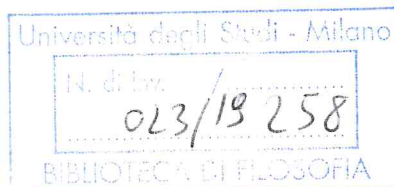 Università degli Studi - Milano
N. di Inv.
023/19258
BIBLIOTECA DI FILOSOFIA